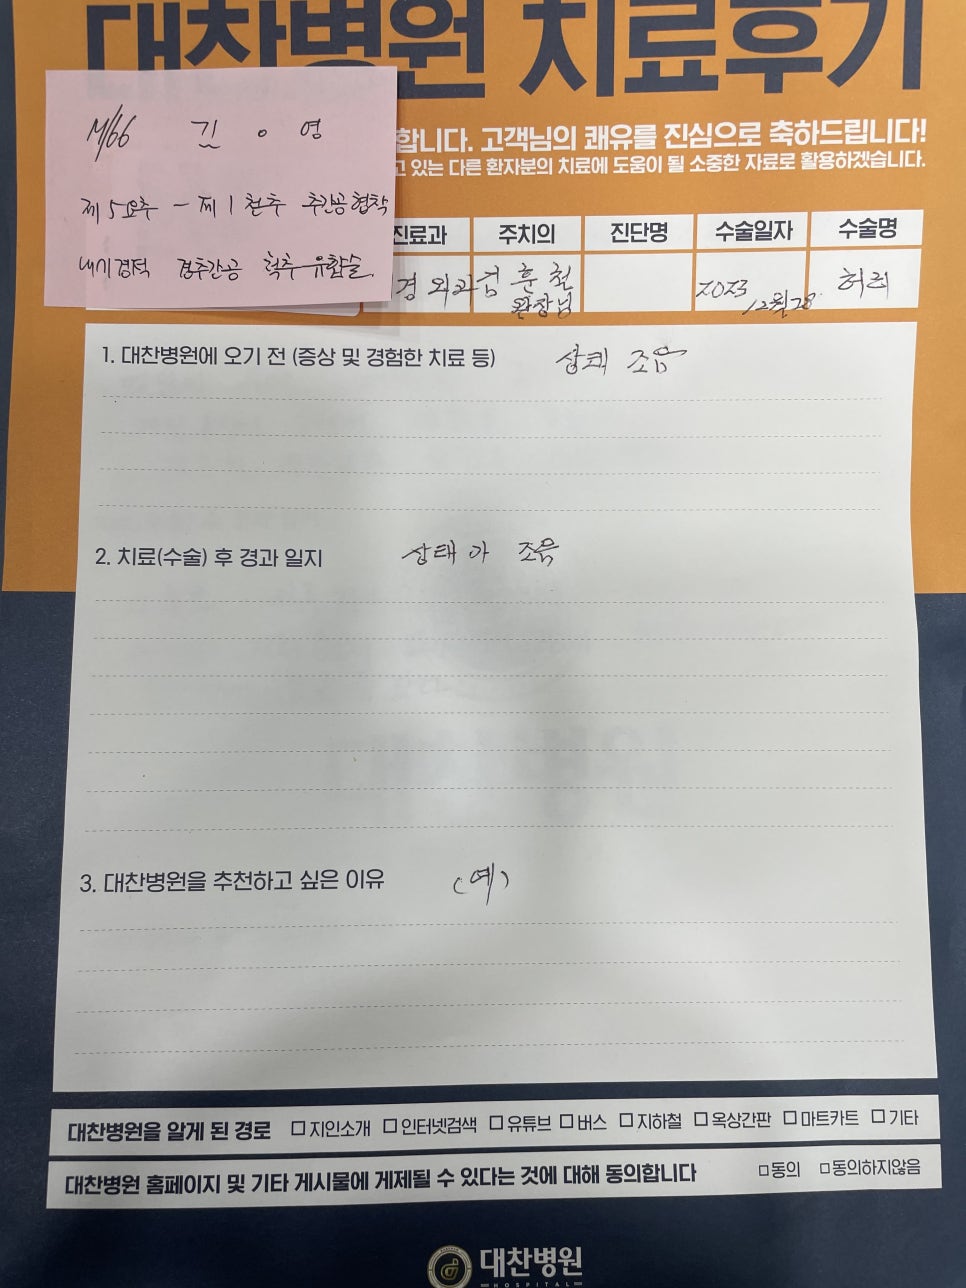 대찬병원 치료후기
M/66 김 ㅇ 영
제5요추 - 제1천추 추간공협착
내시경적 경추간공 척추유합술
합니다. 고객님의 쾌유를 진심으로 축하드립니다!
고 있는 다른 환자분의 치료에 도움이 될 소중한 자료로 활용하겠습니다.
진료과 주치의 진단명 수술일자 수술명
경외과 김훈철 원장님 2023 12월28 허리
1. 대찬병원에 오기 전 (증상 및 경험한 치료 등) 상태 조음
2. 치료(수술) 후 경과 일지 상태가 조음
3. 대찬병원을 추천하고 싶은 이유 (예)
대찬병원을 알게 된 경로 □ 지인소개 □ 인터넷검색 □ 유튜브 □ 버스 □ 지하철 □ 옥상간판 □ 마트카트 □ 기타
대찬병원 홈페이지 및 기타 게시물에 게제될 수 있다는 것에 대해 동의합니다 □동의 □동의하지않음
대찬병원
HOSPITAL